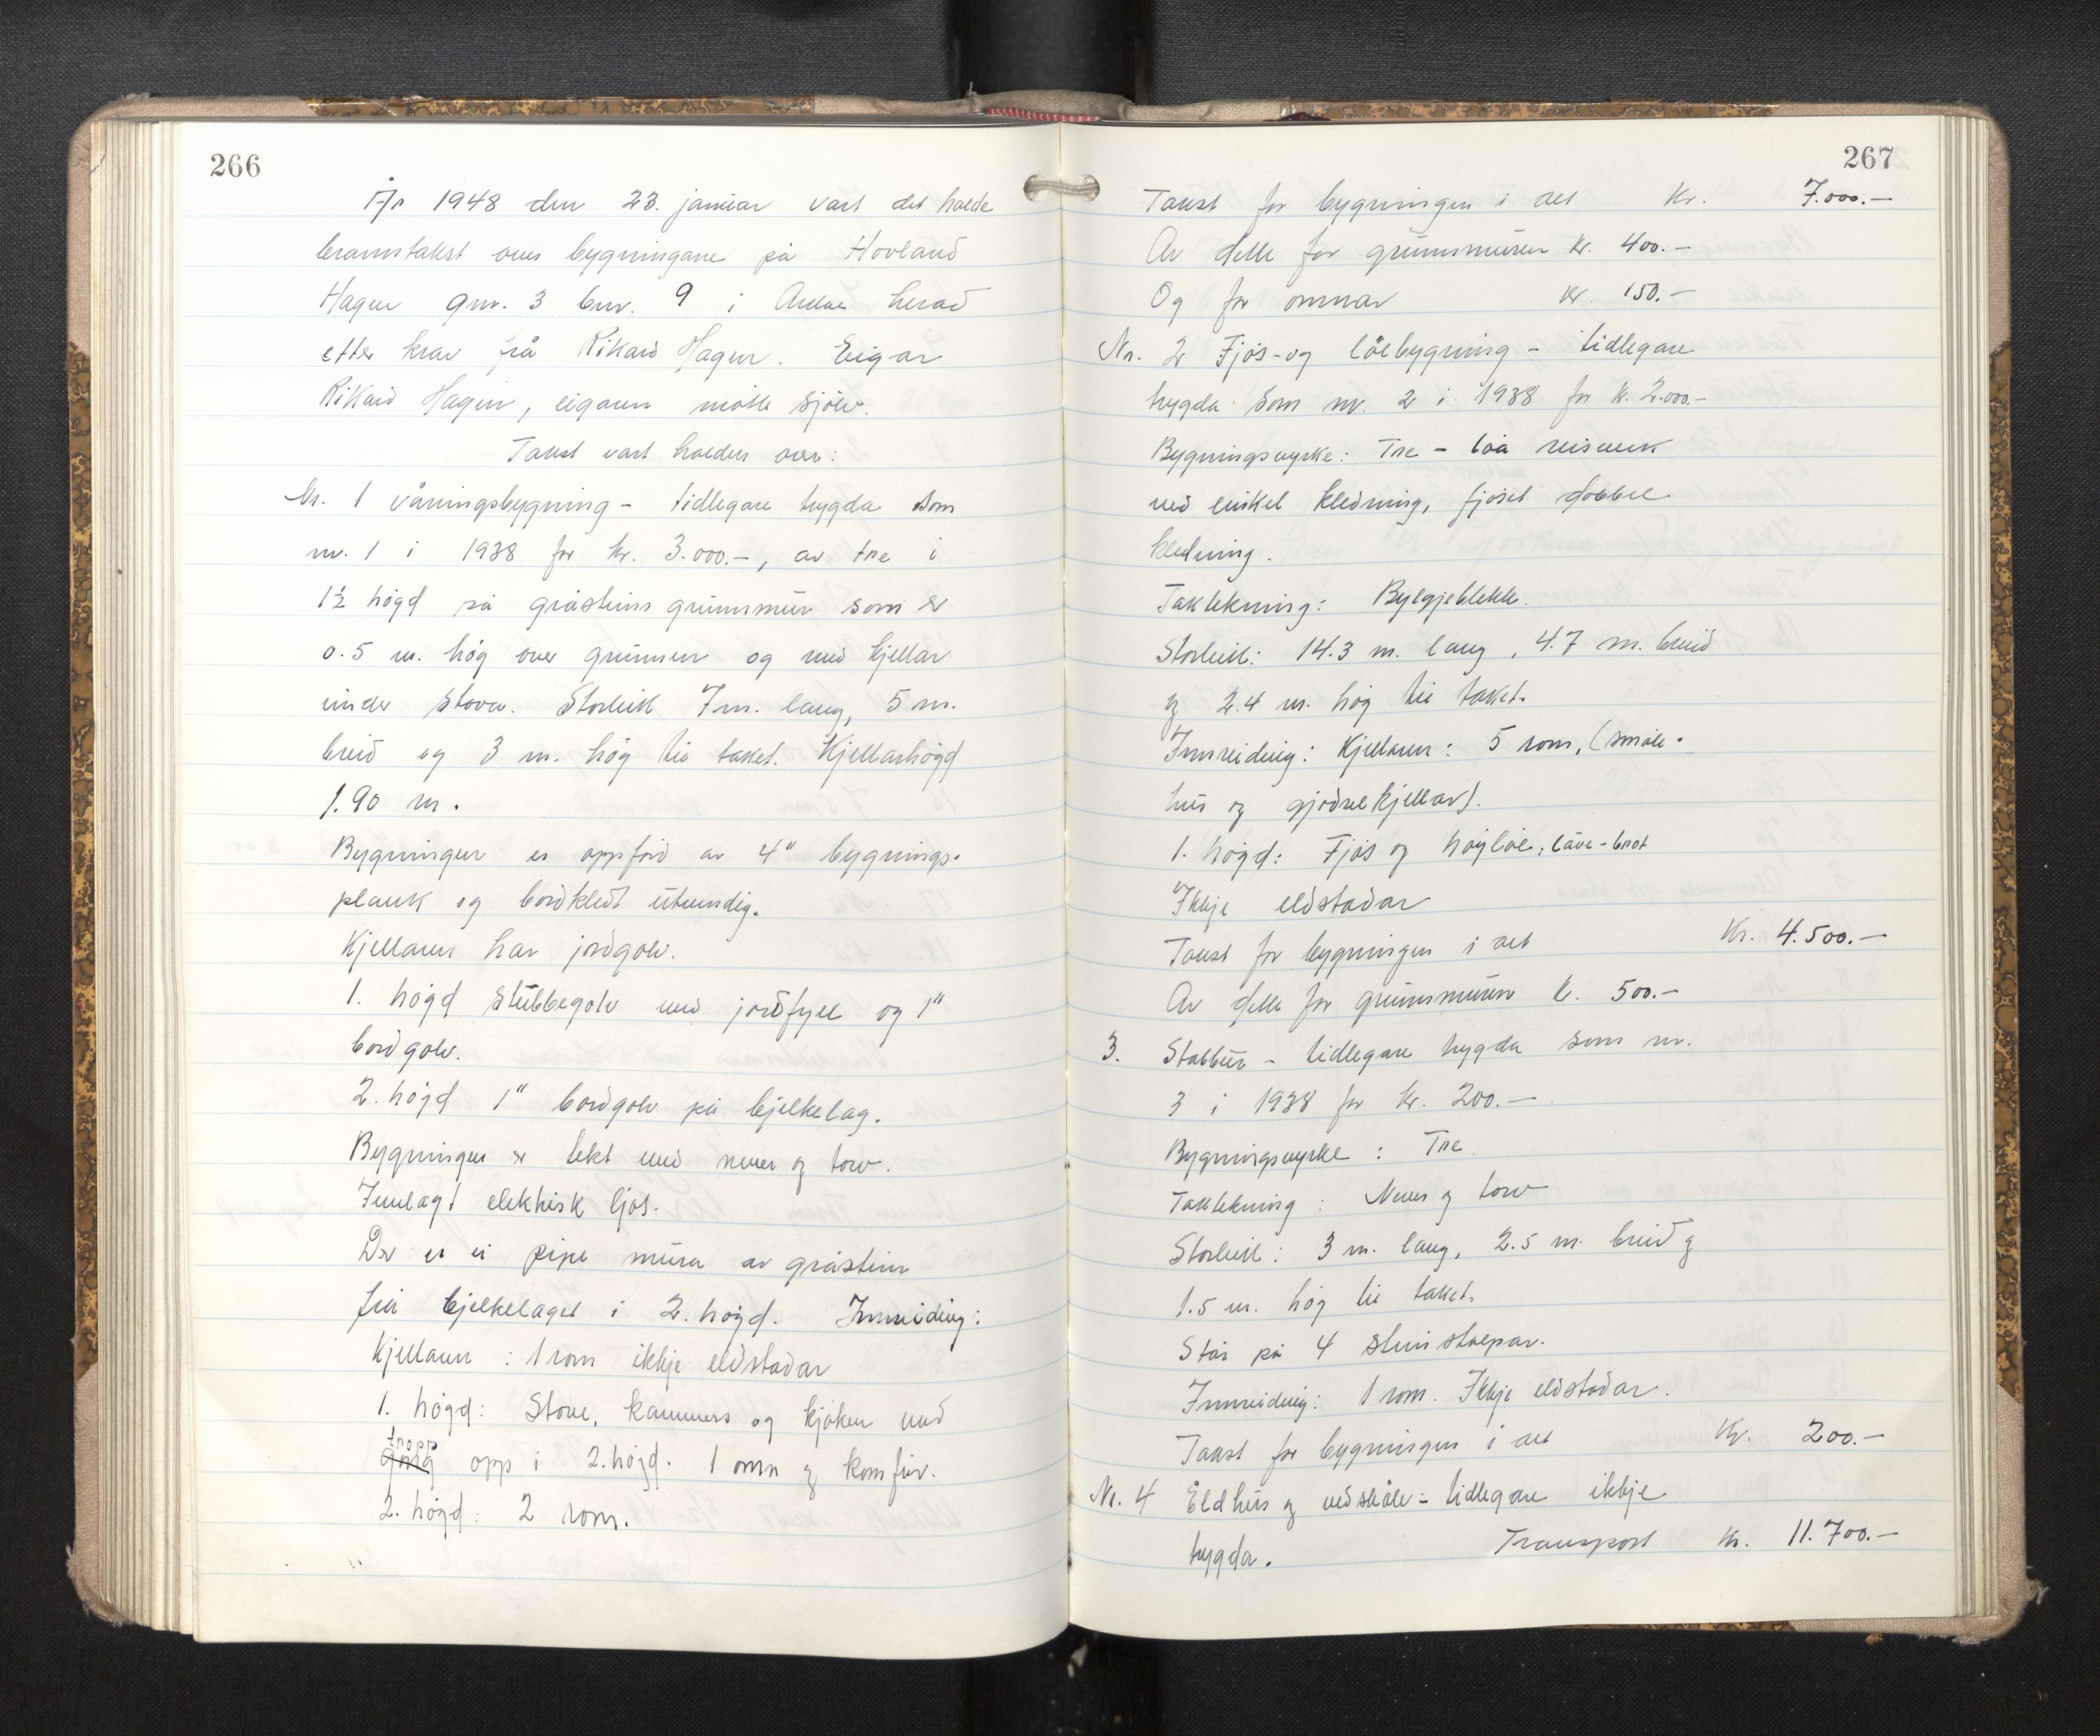 266
År 1948 den 23. januar vart det halde
branntakst over bygningane på Hovland
Hagen gnr. 3 bnr. 9 i herad
etter krav frå Rikard Hagen. Eigar
Rikard Hagen, eigaren møtte sjølv.
Takst vart halden over:
Nr. 1 våningsbygning - tidlegare trygda som
nr. 1 i 1938 for kr. 3.000.-, av tre i
1½ høgd på gråsteins grunnmur som er
0.5 m. høg over grunnen og med kjellar
under stova. Storleik 7 m. lang, 5 m.
breid og 3 m. høg til taket. Kjellarhøgd
1.90 m.
Bygningen er oppførd av 4" bygnings-
plank og bordkledt utvendig.
Kjellaren har jordgolv.
1. høgd stubbegolv med jordfyll og 1"
bordgolv.
2. høgd 1" bordgolv på bjelkelag.
Bygningen er tekt med never og torv.
Innlagt elektrisk ljos.
Der er ei pipe mura av gråstein
frå bjelkelaget i 2. høgd. Innreiding:
Kjellaren: 1 rom ikkje eldstadar
1. høgd: Stove, kammers og kjøken med
tropp
gang opp i 2. høgd. 1 omn og komfur.
2. høgd: 2 rom.
267
Takst for bygningen i alt Kr. 7.000.-
Av dette for grunnmuren kr. 400.-
Og for omnar kr. 150.-
Nr. 2 Fjøs- og løebygning - tidlegare
trygda som nr. 2 i 1938 for kr. 2.000.-
Bygningsvyrke: Tre - løa reisverk
med enkel kledning, fjøset dobbel
kledning.
Taktekning: Bylgjeblekk.
Storleik: 14.3 m. lang, 4.7 m. breid
og 2.4 m. høg til taket.
Innreiding: Kjellaren: 5 rom, (smale-
hus og gjødselkjellar).
1. høgd: Fjøs og høyløe, låve-brot
Ikkje eldstadar
Takst for bygningen i alt Kr. 4.500.-
Av dette for grunnmuren kr. 500.-
3. Stabbur - tidlegare trygda som nr.
3 i 1938 for kr. 200.-
Bygningsvyrke: Tre
Taktekning: Never og torv
Storleik: 3 m. lang, 2.5 m. breid og
1.5 m. høg til taket.
Står på 4 steinstolpar.
Innreiding: 1 rom. Ikkje eldstadar.
Takst for bygningen i alt Kr. 200.-
Nr. 4 Eldhus og vedskåle - tidlegare ikkje
trygda. Transport Kr. 11.700.-